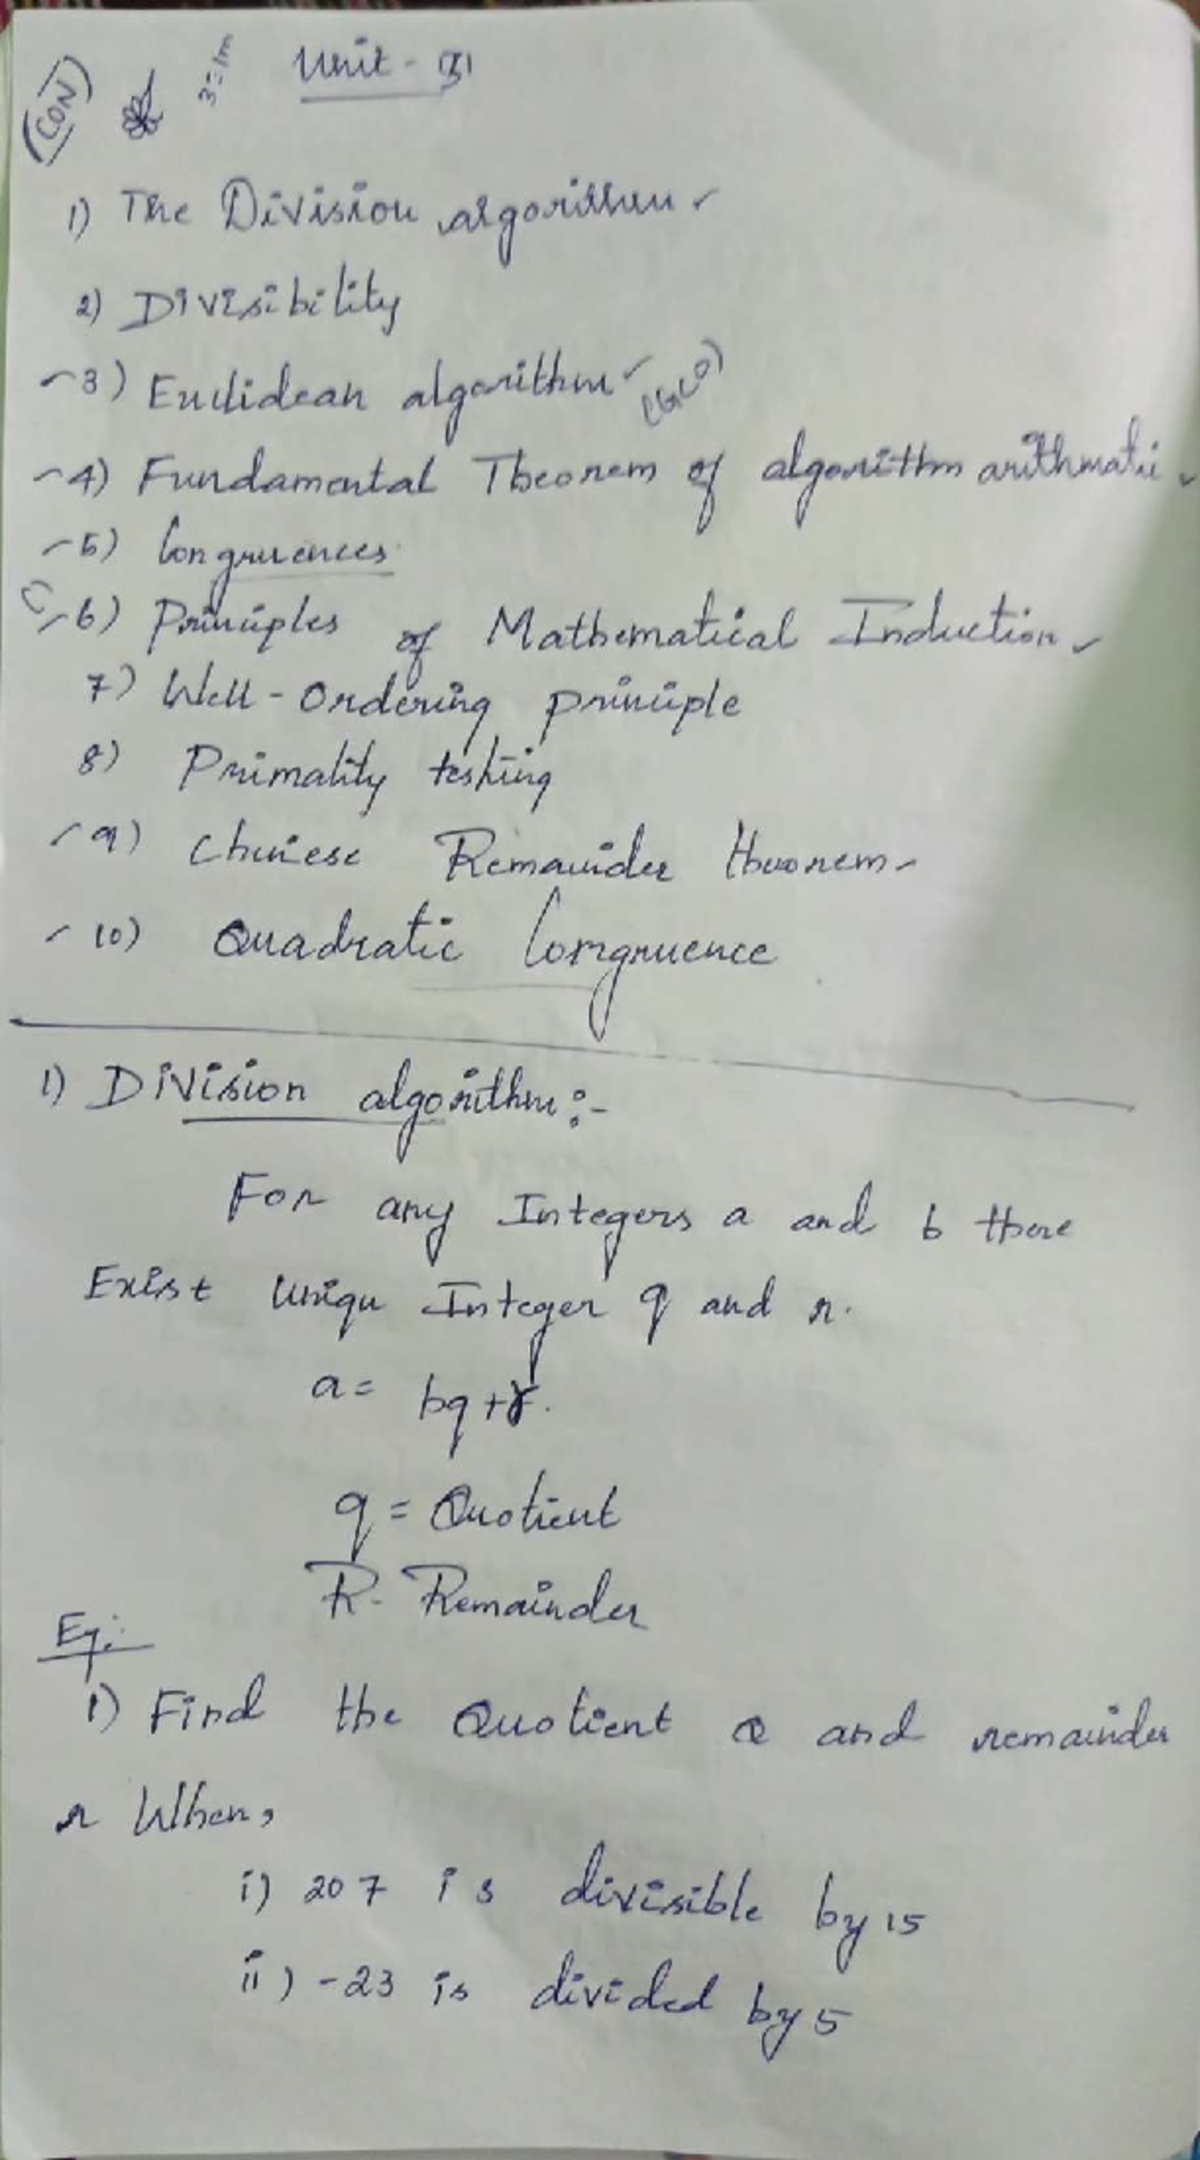 (CON)
3=1m
Unit -
1) The Division algorithm
2) Divisibility
3) Euclidean algorithm (GCD)
4) Fundamental Theorem of algorithm arithmatic
5) Congruences
6) Principles of Mathematical Induction
7) Well-Ordering principle
8) Primality testing
9) Chinese Remainder theorem
10) Quadratic Congruence
1) Division algorithm:-
For any Integers a and b there
Exist Uniqu Integer q and r.
a = bq + r.
q = Quotient
R - Remainder
Eg:-
1) Find the Quotient Q and remainder
r When,
i) 207 is divisible by 15
ii) -23 is divided by 5